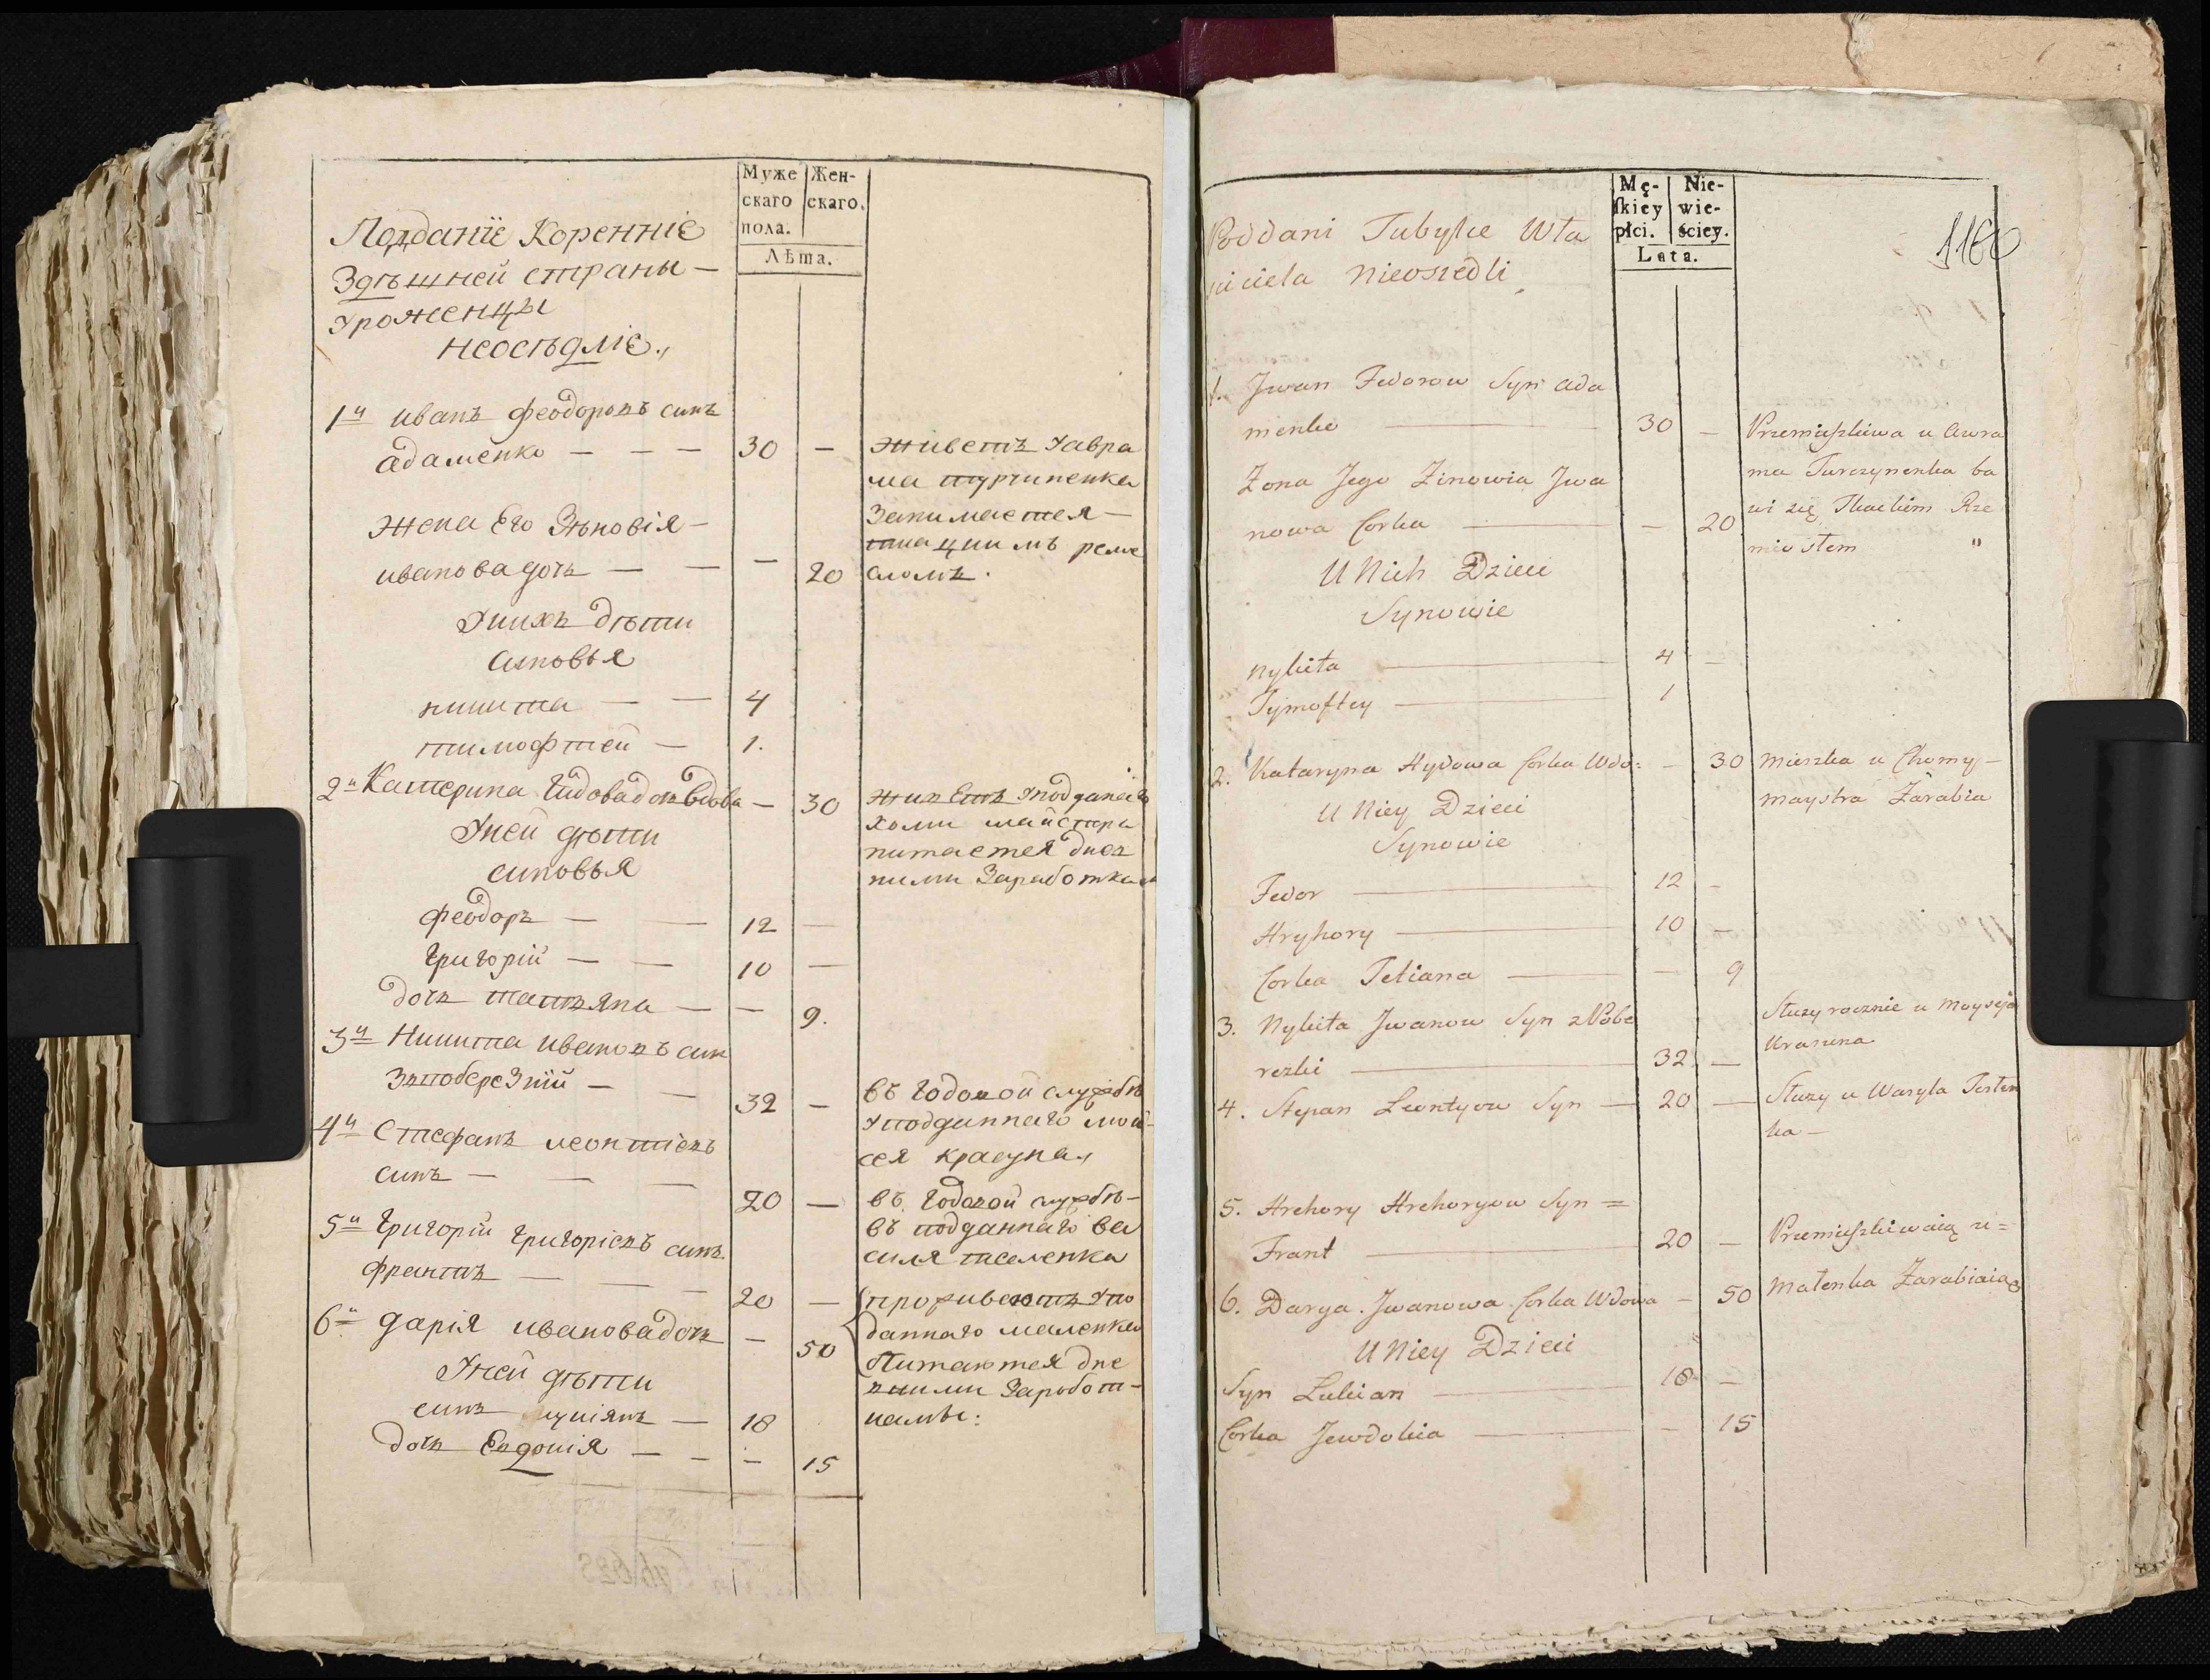 Муже
скаго
пола.
Жен-
скаго.
Лѣта.
Подданіе Коренніе
Здѣшней страны —
Уроженцы
неосѣдліе.,
1й иванъ феодоровъ синъ
адаменко — — —
30
—
живетъ Уавра
ма турчиненка
Занимается —
ткацкимъ реме
сломъ.
Жена Его Зѣновія —
иванова дочъ — —
—
20
Унихъ дѣти
синовья
никита — —
4
тимофтей —
1.
2я Катерина гидова дочъ вдова
—
30
живетъ Уподданаго
хоми майстра
питается днев
ними Заработками
Уней дѣти
синовья
феодоръ — —
12
—
григорій — —
10
—
дочъ татъяна —
—
9.
3й Никита ивановъ син
Зпобережній — —
32
—
въ годовой службѣ
Уподданнаго мой-
сея красуна.,
4й Стефанъ леонтіевъ
синъ — — —
20
—
въ годовой службѣ —
въ подданнаго ва
силя
5й григорій григоріевъ синъ
франтъ — — —
20
—
проживаютъ Упо
даннаго маленка
Питаются дне
вними Заработ-
ками:
6я дарія иванова дочъ
—
50
Уней дѣти
синъ лукіянъ —
18
дочъ Евдокія — —
—
15
Mę-
ſkiey
płci.
Nie-
wie-
ściey.
Lata.
1160
Poddani Tubylce Wła
siciela Nieosiedli
1. Jwan Fedorow Syn ada
menko
30
—
Przemieſzkiwa u Awra
ma Turczynenka ba
wi się Tkackim Rze
miosłem "
Zona Jego Zinowia Jwa
nowa Corka
—
20
U Nich Dzieci
Synowie
Nykita
4
—
Tymoftey
1
2. Kataryna Hydowa Corka Wdo:
—
30
Mieszka u Chomy —
maystra Zarabia
U Niey Dzieci
Synowie
Fedor
12
—
Hryhory
10
—
Corka Tetiana
—
9
3. Nykita Jwanow Syn z Pobe
rezki
32
—
Służy rocznie u Moyseja
Krasuna
4. Stepan Leontyow Syn —
20
—
Służy u Wasyla
ka —
5. Hrehory Hrehoryow Syn =
Frant
20
—
Przemieſzkiwaią u =
Malenka Zarabiaią
6. Darya Jwanowa Corka Wdowa
—
50
U Niey Dzieci
Syn Lukian
18
—
Corka Jewdokia
—
15